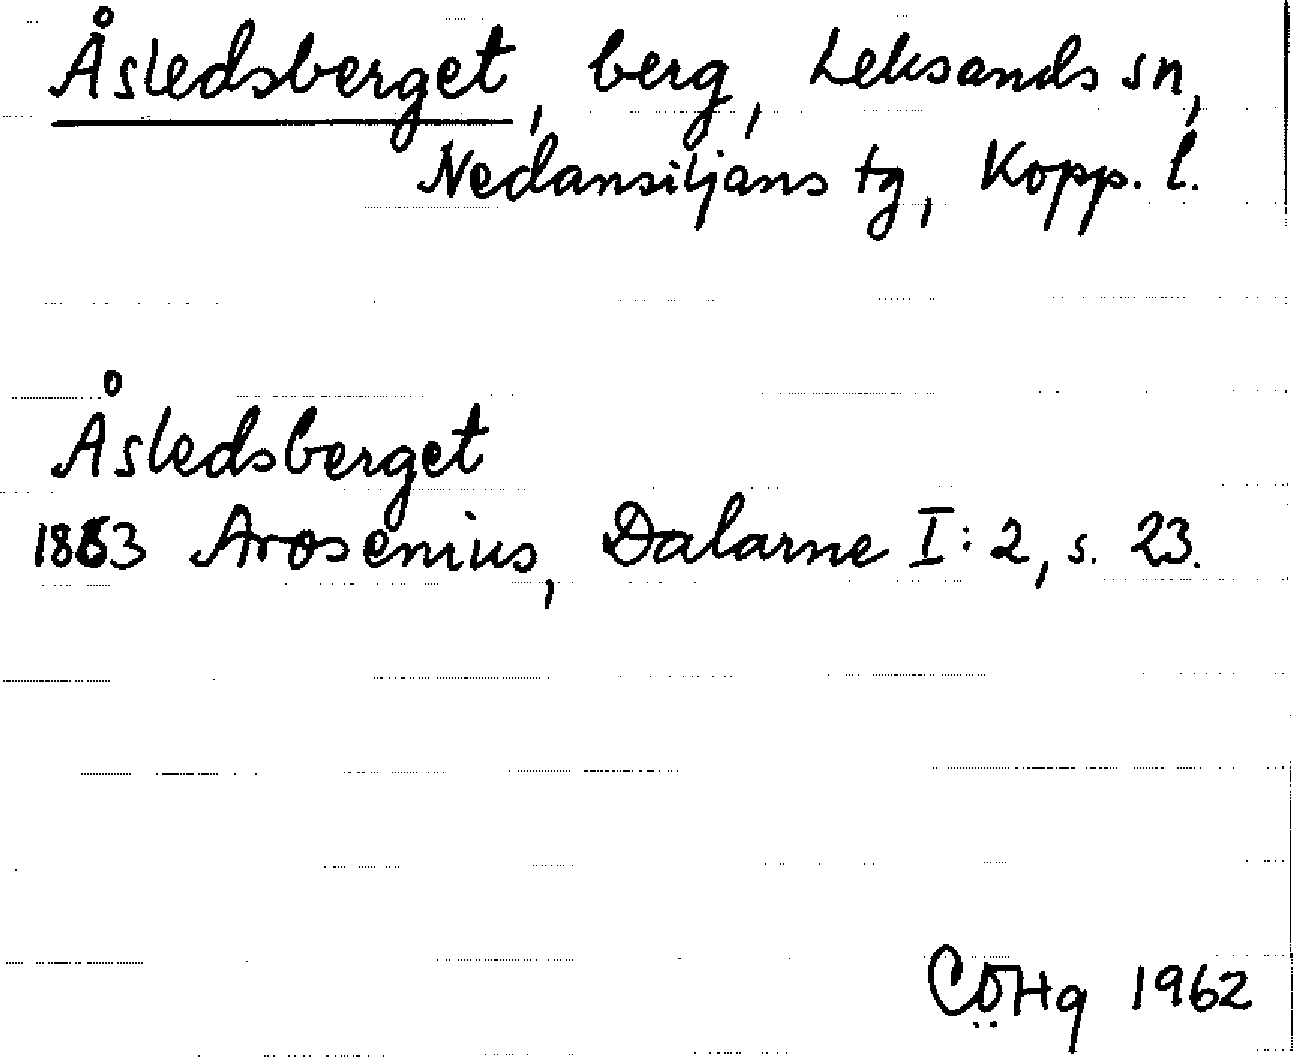 Åsledsberget, berg, Leksands sn,
Nedansiljans tg, Kopp. l.
Åsledsberget
1863 Arosenius, Dalarne I:2, s. 23.
CÖHg 1962